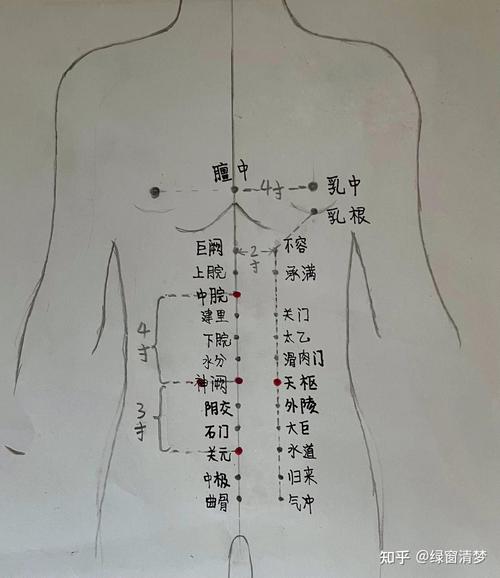 膻中
4寸
乳中
乳根
巨阙
2寸
不容
上脘
承满
中脘
建里
关门
下脘
太乙
4寸
水分
滑肉门
神阙
天枢
阴交
外陵
3寸
石门
大巨
关元
水道
中极
归来
曲骨
气冲
知乎 @绿窗清梦